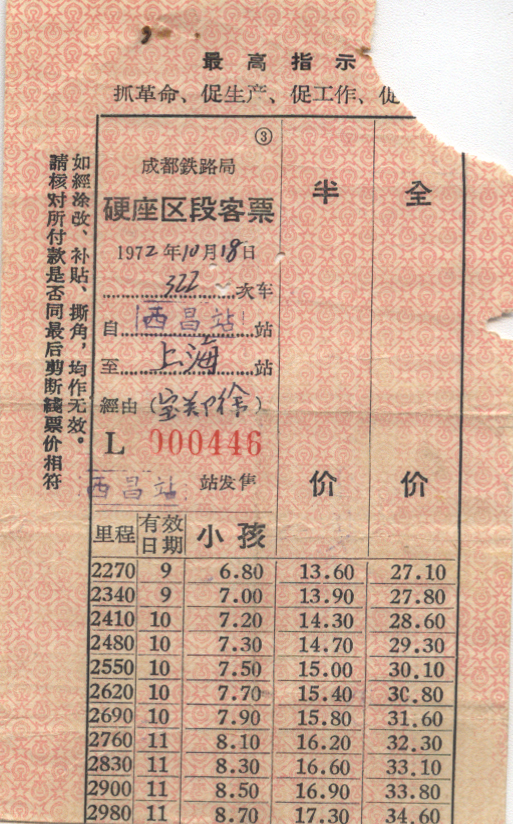 最高指示
抓革命、促生产、促工作、促
如經涂改、补貼、撕角,均作无效。
請核对所付款是否同最后剪断綫票价相符
③
成都鉄路局
硬座区段客票
1972年10月18日
322次車
自西昌站站
至上海站
經由(宝郑徐)
L 000446
西昌站 站发售
半价
全价
里程 有效日期 小孩
2270 9 6.80 13.60 27.10
2340 9 7.00 13.90 27.80
2410 10 7.20 14.30 28.60
2480 10 7.30 14.70 29.30
2550 10 7.50 15.00 30.10
2620 10 7.70 15.40 30.80
2690 10 7.90 15.80 31.60
2760 11 8.10 16.20 32.30
2830 11 8.30 16.60 33.10
2900 11 8.50 16.90 33.80
2980 11 8.70 17.30 34.60